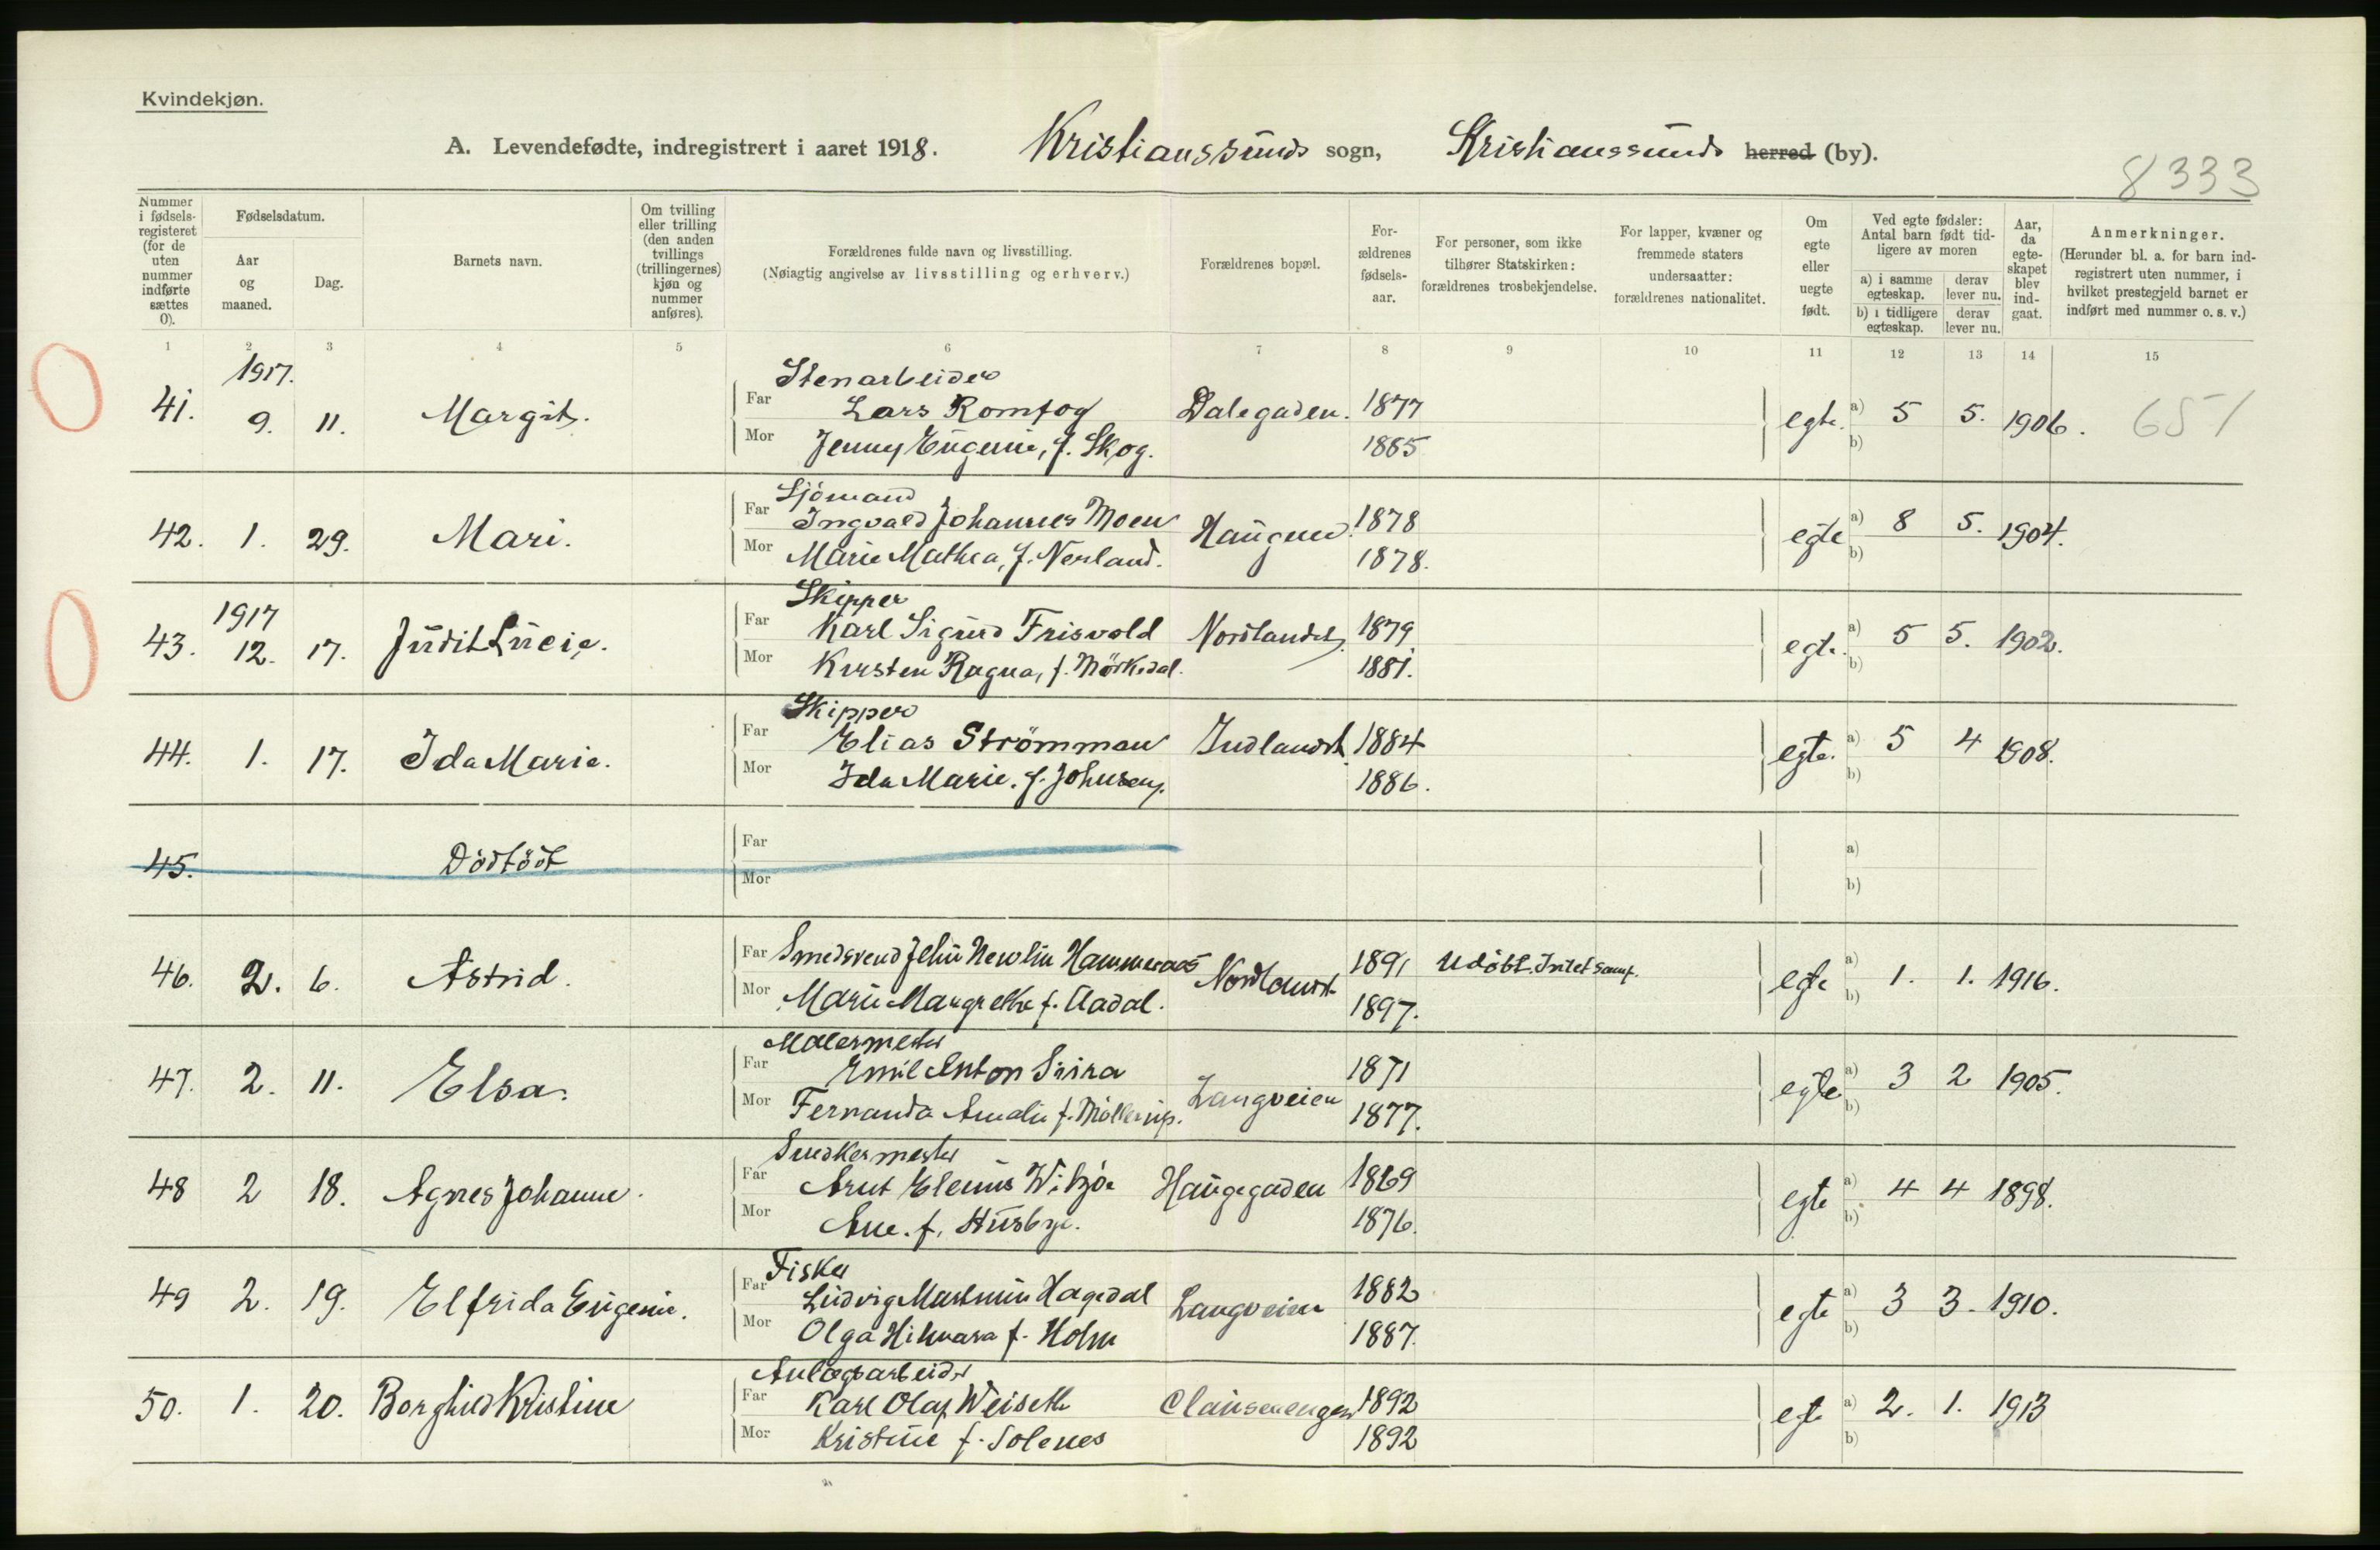 Kvindekjøn.
A. Levendefødte, indregistrert i aaret 1918. Kristianssunds sogn, Kristianssunds herred (by).
8333
Nummer i fødsels-registeret (for de uten nummer indførte sættes 0).
Fødselsdatum.
Aar og maaned.
Dag.
Barnets navn.
Om tvilling eller trilling (den anden tvillings (trillingernes) kjøn og nummer anføres).
Forældrenes fulde navn og livsstilling.
(Nøiagtig angivelse av livsstilling og erhverv.)
Forældrenes bopæl.
For-ældrenes fødsels-aar.
For personer, som ikke tilhører Statskirken: forældrenes trosbekjendelse.
For lapper, kvæner og fremmede staters undersaatter: forældrenes nationalitet.
Om egte eller uegte født.
Ved egte fødsler: Antal barn født tid-ligere av moren
a) i samme egteskap.
derav lever nu.
b) i tidligere egteskap.
derav lever nu.
Aar, da egte-skapet blev ind-gaat.
Anmerkninger.
(Herunder bl. a. for barn ind-registrert uten nummer, i hvilket prestegjeld barnet er indført med nummer o. s. v.)
1 2 3 4 5 6 7 8 9 10 11 12 13 14 15
1917. Stenarbeider
41. 9. 11. Margit. Far Lars Romfog Dalegaden. 1877 egte. a) 5 5. 1906. 651
Mor Jenny Eugenie, f. Skog. 1885 b)
Sjömand
42. 1. 29. Mari. Far Ingvald Johannes Moen Haugen. 1878 egte a) 8 5. 1904.
Mor Marie Mathea, f. Nerland. 1878. b)
1917 Skipper
43. 12. 17. Judit Lucie. Far Karl Sigurd Frisvold Nordlandet 1879 egte. a) 5 5. 1902.
Mor Kirsten Ragna, f. Mörkedal. 1881. b)
Skipper
44. 1. 17. Ida Marie. Far Elias Strömman Indlandet 1884 egte. a) 5 4 1908.
Mor Ida Marie. f. Johnsen. 1886. b)
45. Dödfödt Far a)
Mor b)
46. 2. 6. Astrid. Far Smedsvend John Hammeraas Nordlandet 1891 Udöbt. Intet samf. egte a) 1. 1. 1916.
Mor Marie Margrethe f. Aadal. 1897. b)
Malermester
47. 2. 11. Elsa. Far Emil Anton Langveien 1871 egte a) 3 2 1905.
Mor Fernanda Amalie f. Möllerup. 1877. b)
Snedkermester
48 2 18. Agnes Johanne. Far Arnt Elenus Haugegaden 1869 egte a) 4 4 1898.
Mor Ane. f. Husbye. 1876. b)
Fisker
49 2. 19. Elfrida Eugenie. Far Ludvig Hagedal Langveien 1882 egte a) 3 3. 1910.
Mor Olga Hilmara f. Holm 1887. b)
Anlægsarbeider
50. 1. 20. Borghild Kristine Far Karl Olaf Weiseth Clausenengen 1892 egte a) 2. 1. 1913
Mor Kristine f. Solenes 1892 b)